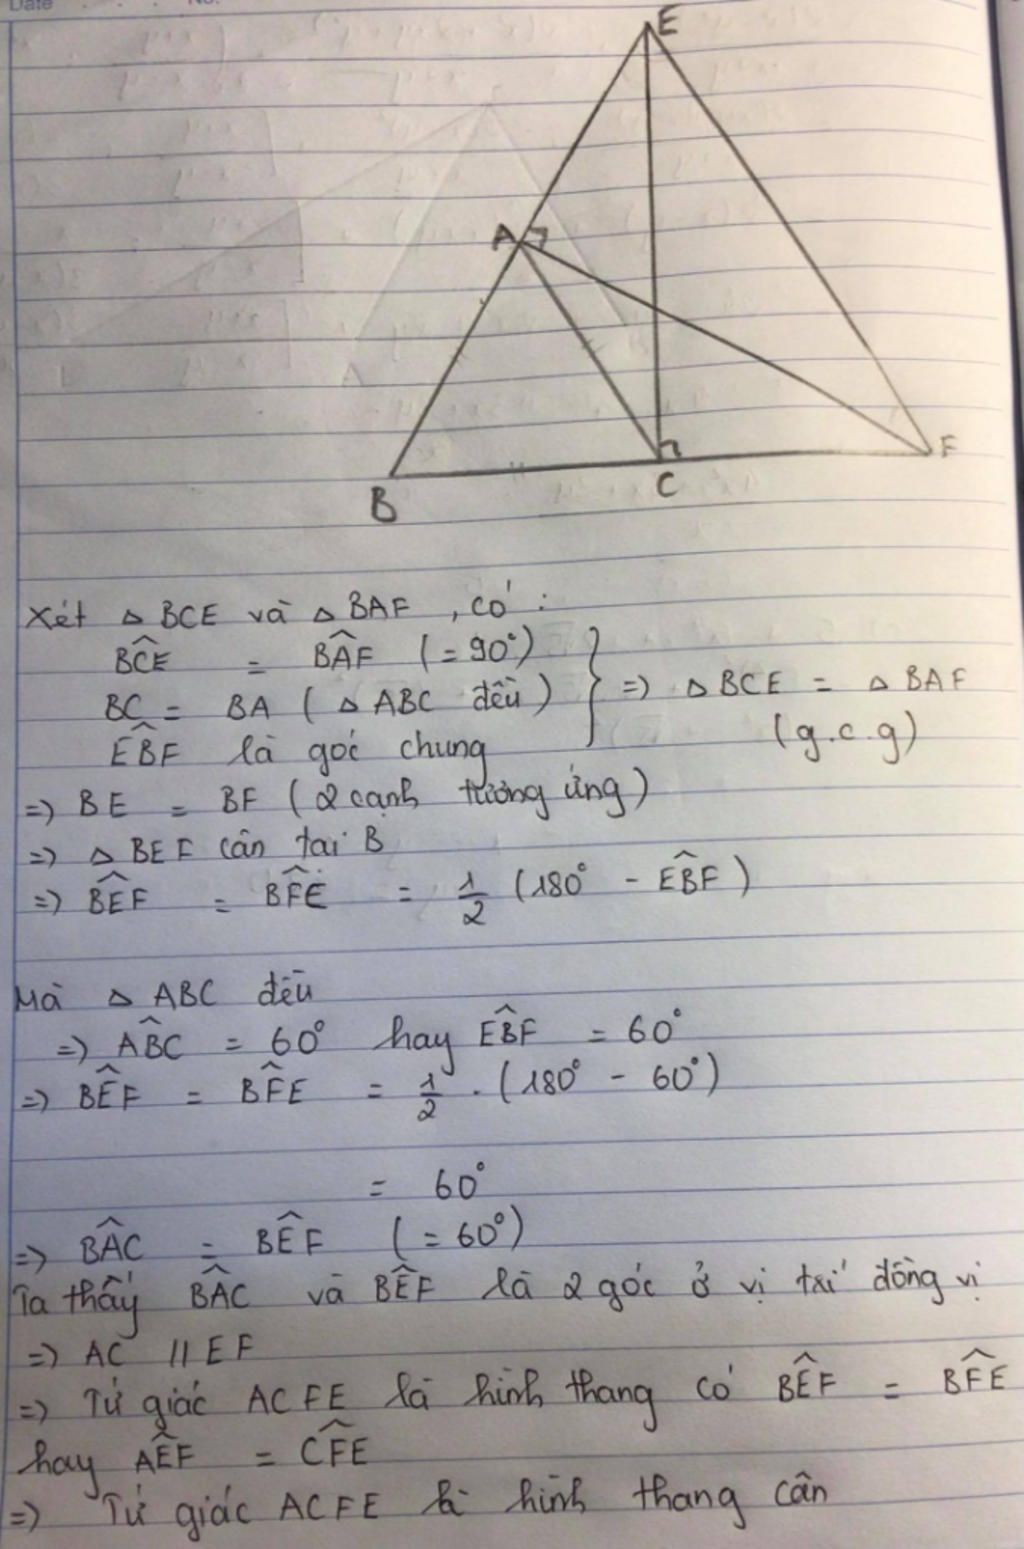 Date
No.
E
A
B
C
F
Xét △ BCE và △ BAF , có :
$\widehat{BCE}$ = $\widehat{BAF}$ (= 90°)
BC = BA ( △ ABC đều ) } => △ BCE = △ BAF
$\widehat{EBF}$ là góc chung (g.c.g)
=> BE = BF ( 2 cạnh tương ứng )
=> △ BEF cân tại B
=> $\widehat{BEF}$ = $\widehat{BFE}$ = $\frac{1}{2}$ (180° - $\widehat{EBF}$ )
Mà △ ABC đều
=> $\widehat{ABC}$ = 60° hay $\widehat{EBF}$ = 60°
=> $\widehat{BEF}$ = $\widehat{BFE}$ = $\frac{1}{2}$ . (180° - 60°)
= 60°
=> $\widehat{BAC}$ = $\widehat{BEF}$ ( = 60°)
Ta thấy $\widehat{BAC}$ và $\widehat{BEF}$ là 2 góc ở vị trí đồng vị
=> AC // EF
=> Tứ giác ACFE là hình thang có $\widehat{BEF}$ = $\widehat{BFE}$
hay $\widehat{AEF}$ = $\widehat{CFE}$
=> Tứ giác ACFE là hình thang cân